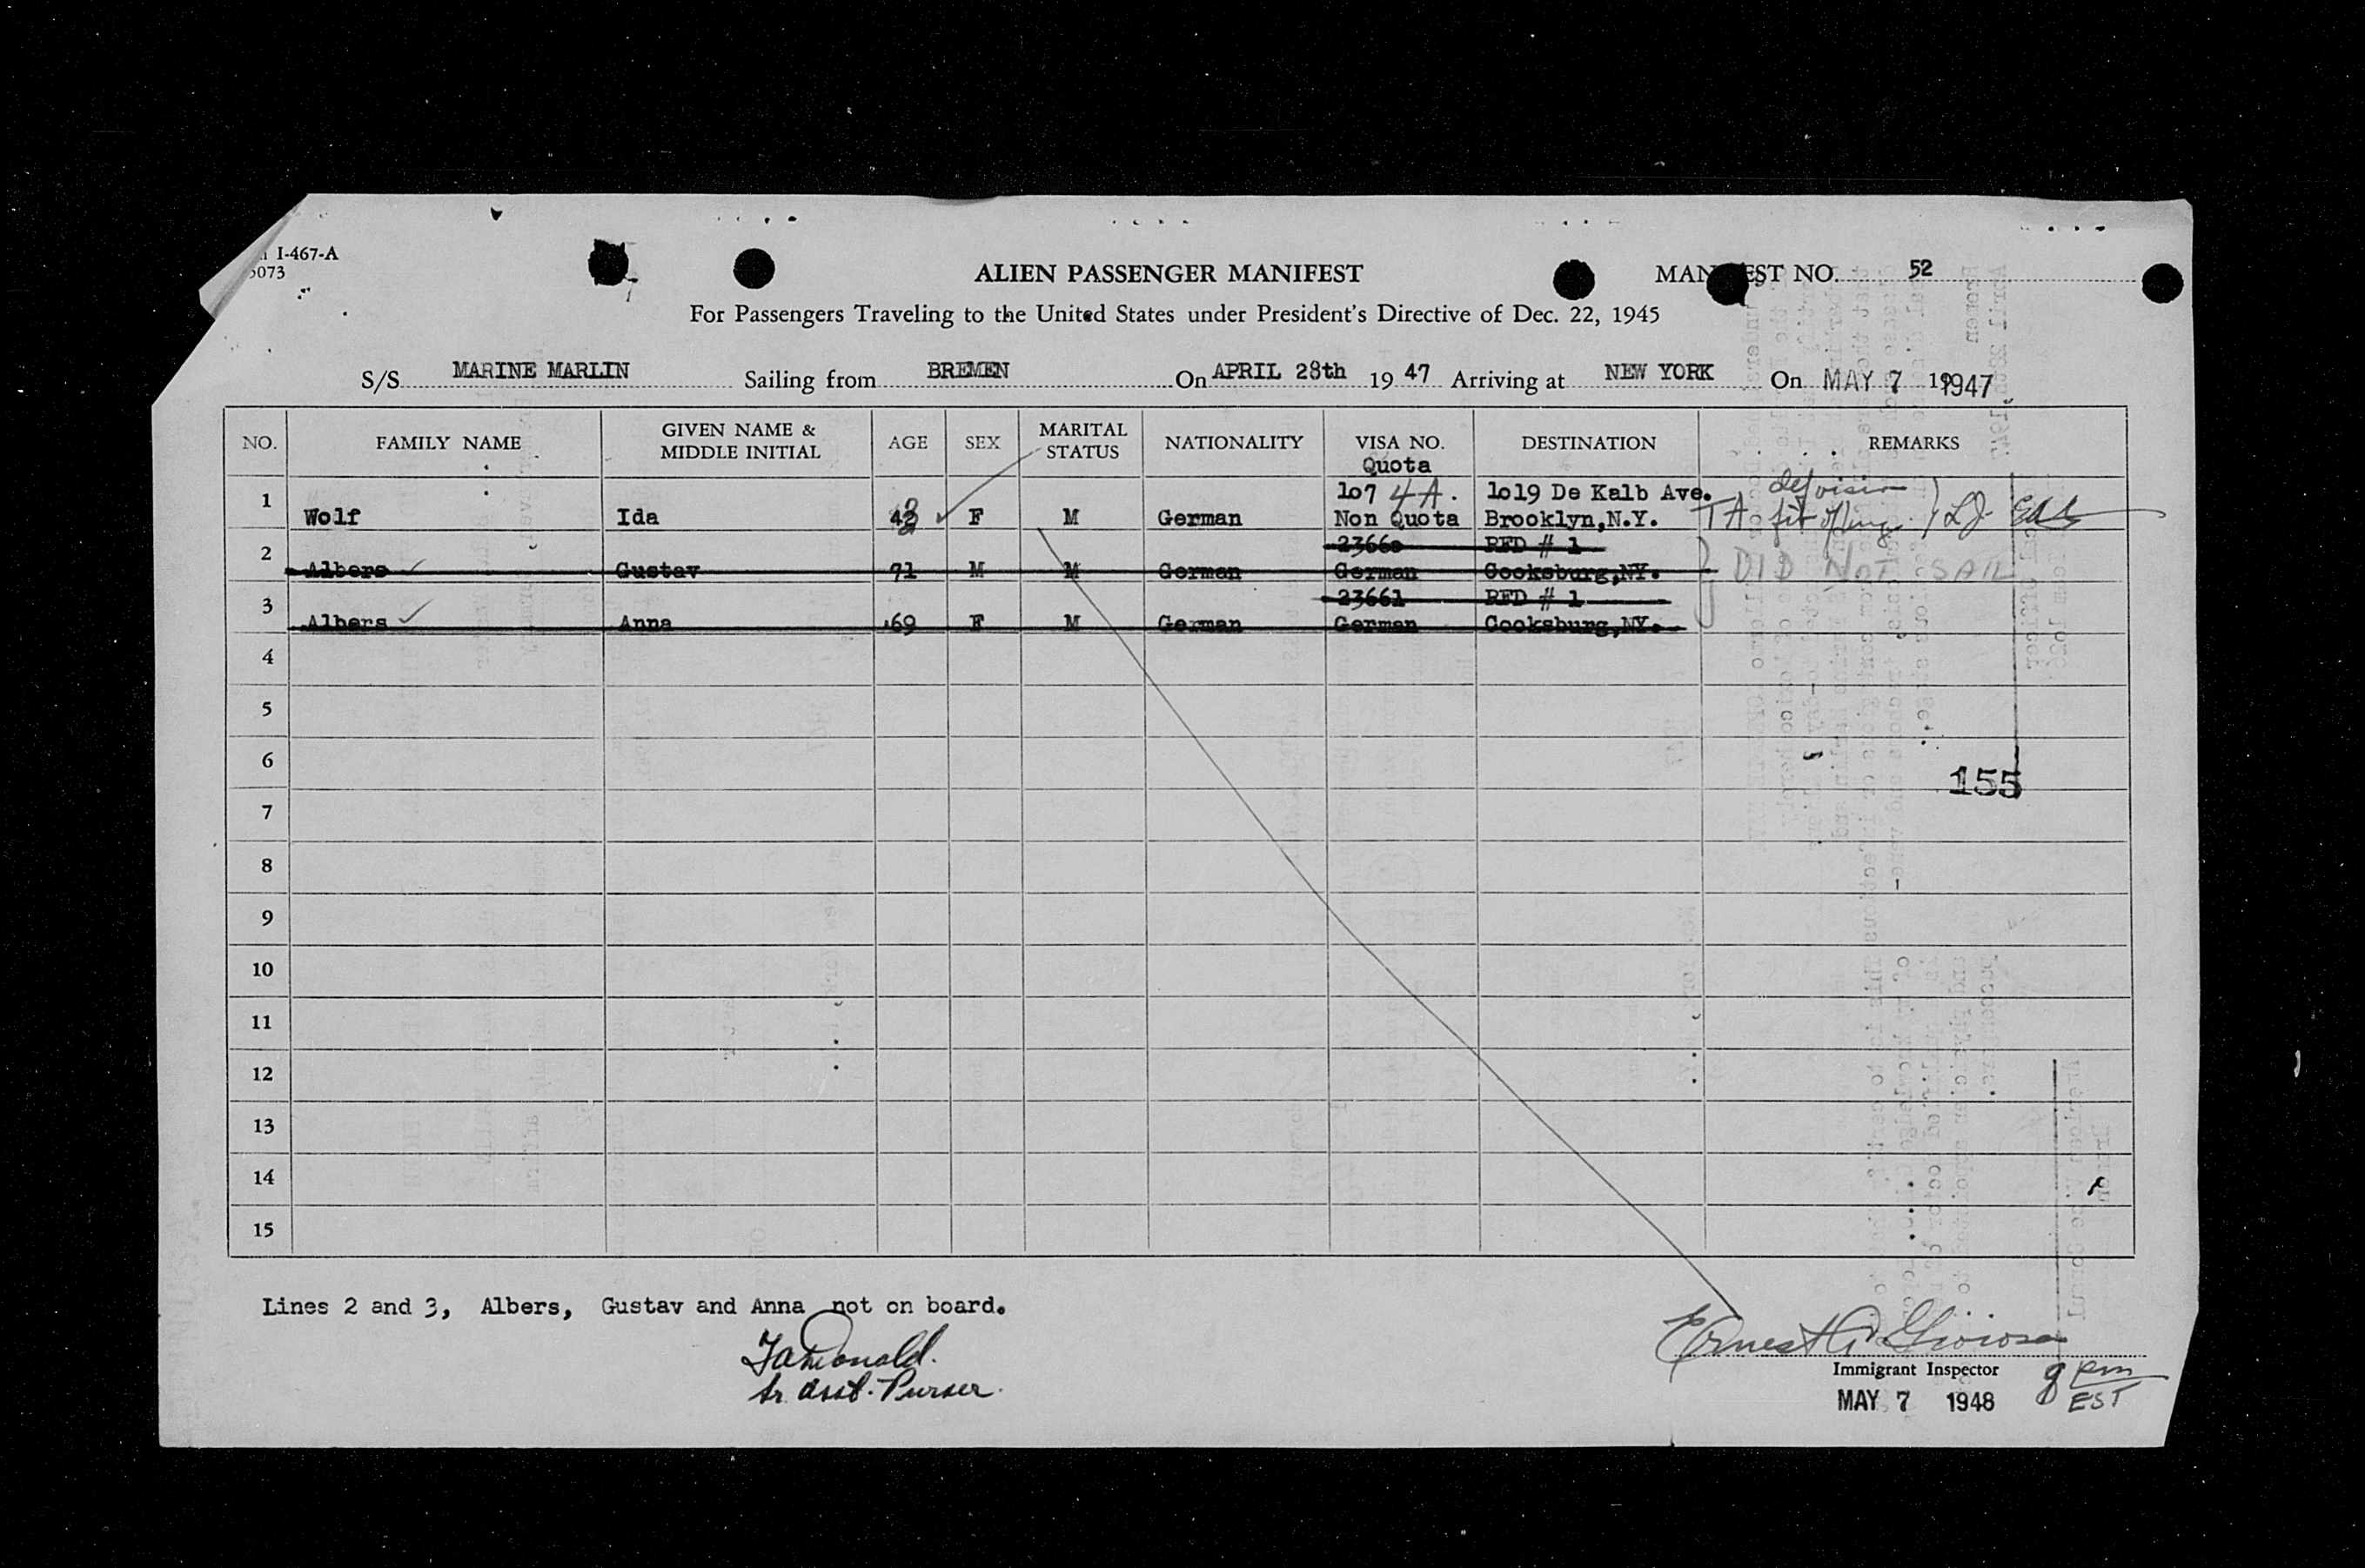 I-467-A
5073
ALIEN PASSENGER MANIFEST
MANIFEST NO. 52
For Passengers Traveling to the United States under President's Directive of Dec. 22, 1945
S/S MARINE MARLIN Sailing from BREMEN On APRIL 28th 19 47 Arriving at NEW YORK On MAY 7 19 1947
NO. FAMILY NAME GIVEN NAME & MIDDLE INITIAL AGE SEX MARITAL STATUS NATIONALITY VISA NO. DESTINATION REMARKS
Quota
107 4A. 1019 De Kalb Ave.
1 Wolf Ida F M German Non Quota Brooklyn,N.Y. TA
23660 RFD # 1
2 Albers Gustav 71 M M German German Cooksburg,NY. DID NOT SAIL
23661 RFD # 1
3 Albers Anna 69 F M German German Cooksburg,NY.
4
5
6
155
7
8
9
10
11
12
13
14
15
Lines 2 and 3, Albers, Gustav and Anna not on board.
Sr. Asst. Purser.
Immigrant Inspector
MAY 7 1948
8 pm
EST